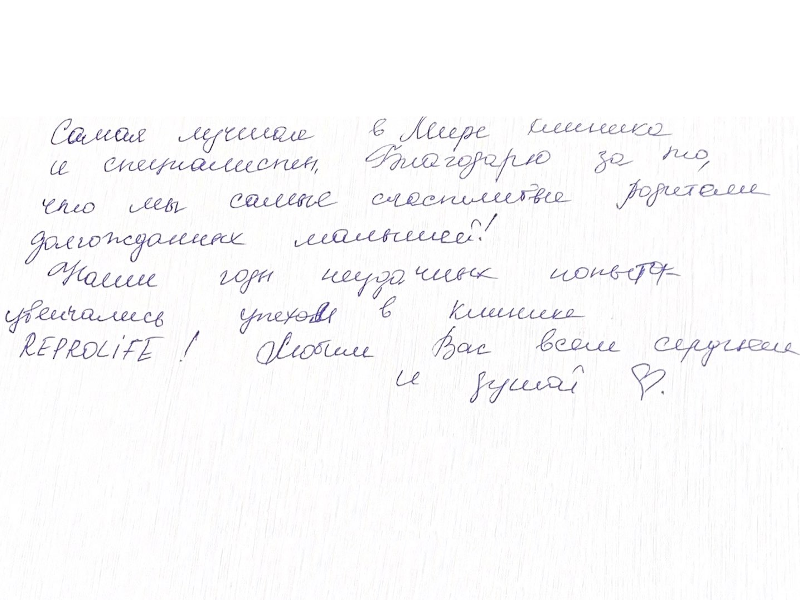 Самая лучшая в Мире клиника
и специалисты. Благодарю за то,
что мы самые счастливые родители
долгожданных малышей!
Наши годы неудачных попыток
увенчались упехом в клинике
REPROLIFE! Любим Вас всем сердцем
и душой ♡.